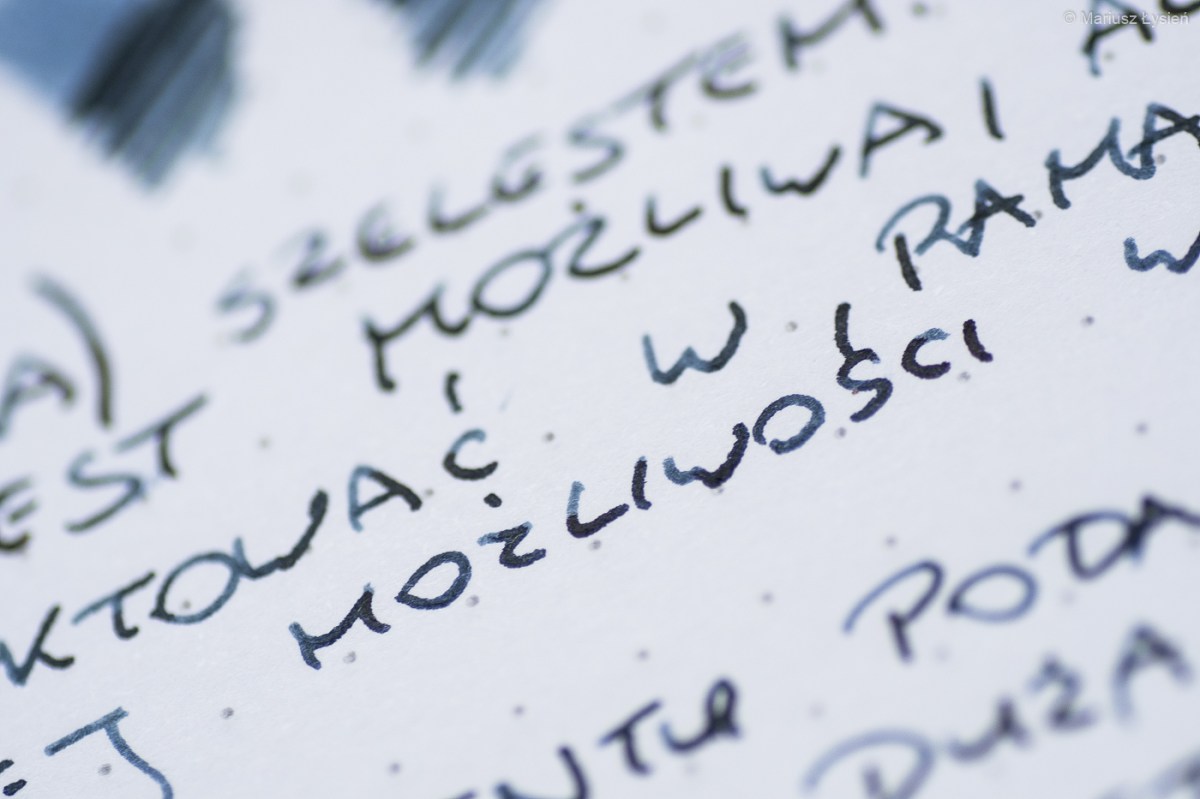 © Mariusz Łysień
A) SZELESTEM.
EST MOŻLIWA I
KTOWAĆ W RAMA
EJ MOŻLIWOŚCI W
PODA
DUŻA